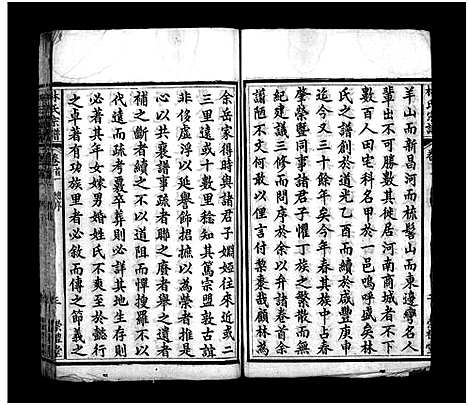 林氏宗譜
羊山而新昌河而梳髻山而東邊灣名人
輩出不可勝數其徙居河南商城者不下
數百人田宅科名甲於一邑嗚呼盛矣林
氏之譜創於道光乙酉而續於咸豐庚申
迄今又三十餘年矣今年春其族瑞桃瑞
肇榮暨同事諸君子懼丁族之繁散而無
紀建議三修而問序於余以弁諸卷首余
譾陋不文何足以言付棃棗哉顧林為
余岳家得時與諸君子姻婭往來近或二
三里遠或十數里稔知其篤宗盟敦古誼
非侈虛浮以延譽飾錦繡以為榮者推是
心以共襄譜事疏者聯之廢者舉之遺者
補之斷者續之不以道阻而憚搜羅不以
代遠而疏考覈卒葬則必詳其地生存則
必著其年女嫁男婚姓氏不至於混懿行
之卓著有功族里者必敘而傳之節義之
林氏宗譜 卷首 總序 三 崇禮堂